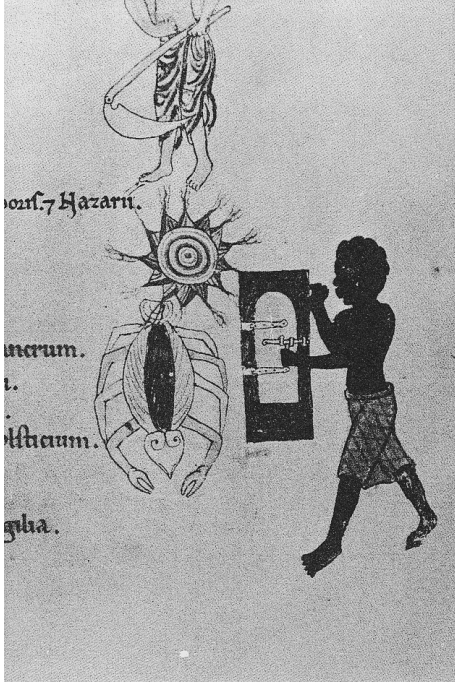 boris.⁊ Nazarii.
ancrum.
olsticium.
gilia.